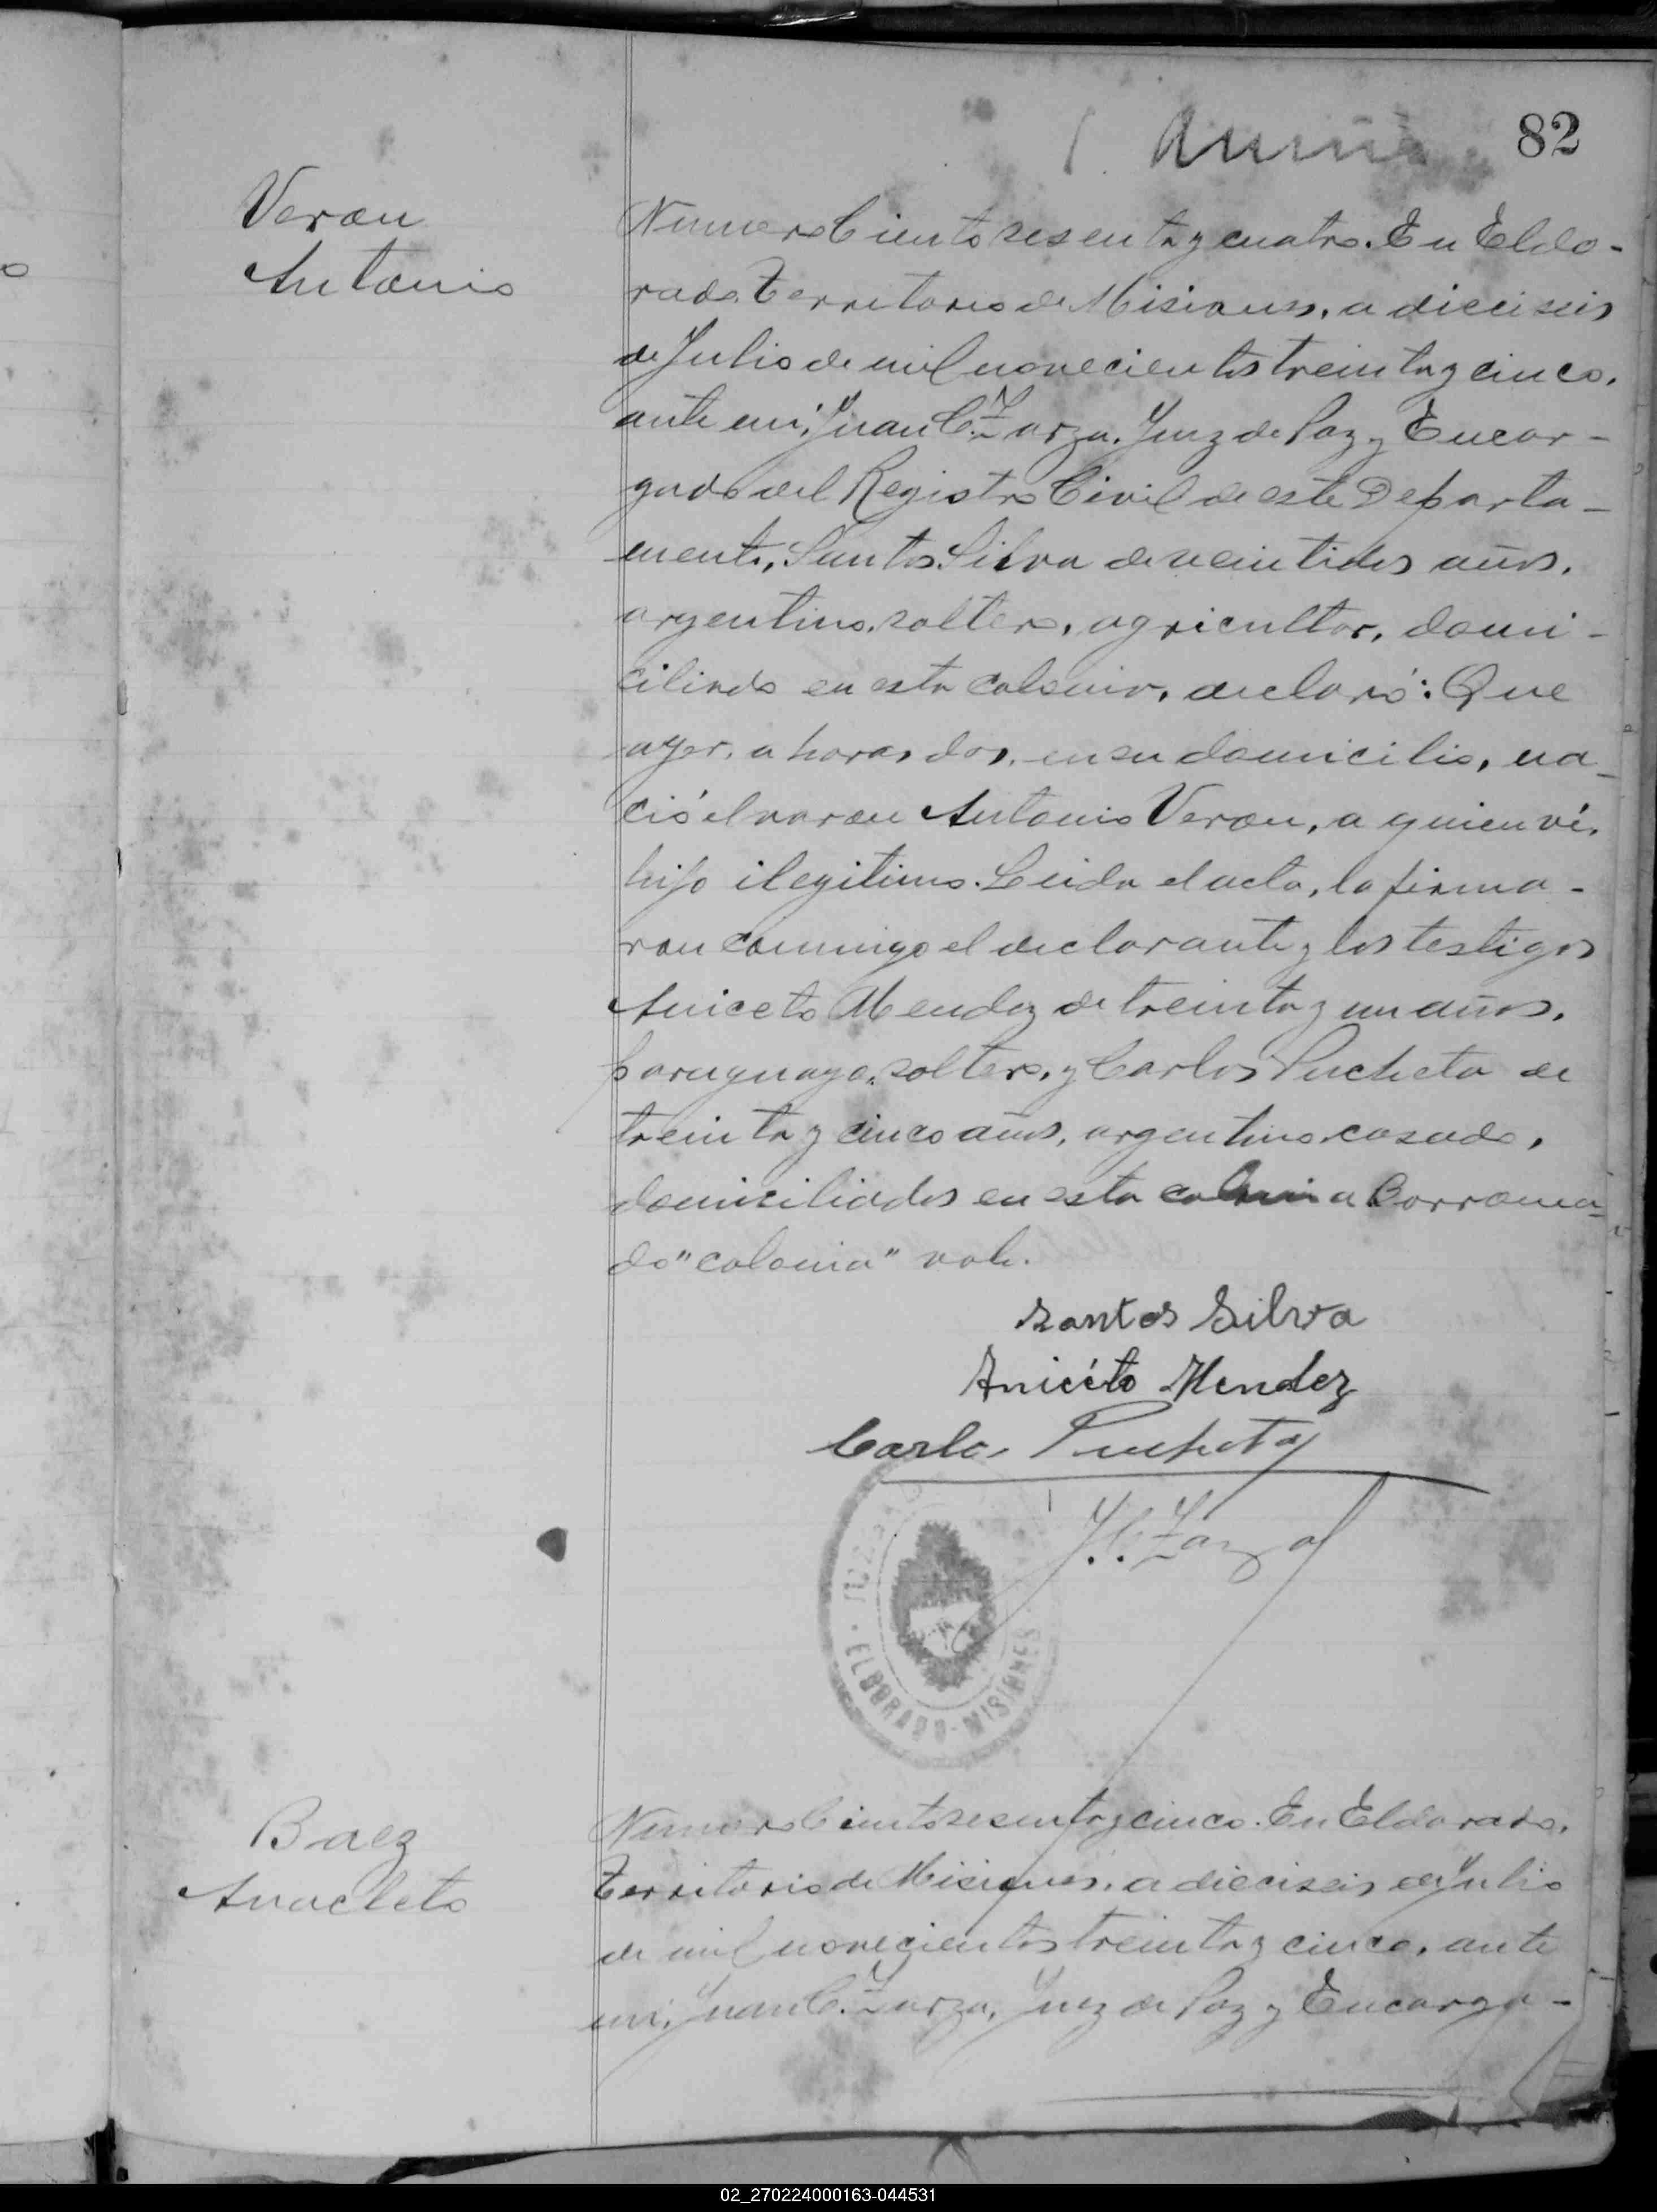 82
Veron
Antonio
Numero Ciento sesenta y cuatro. En Eldo-
rado. Territorio de Misiones, a dieciseis
de Julio de mil novecientos treinta y cinco.
ante mi, Juan C. Zarza. Juez de Paz y Encar-
gado del Registro Civil de este Departa-
mento, Santos Silva de veintidos años,
argentino, soltero, agricultor, domi-
ciliado en esta colonia, declaró: Que
ayer, a horas dos, en su domicilio, na-
ció el varon Antonio Veron, a quien ví,
hijo ilegitimo. Leida el acta, la firma-
ron conmigo el declarante y los testigos
Aniceto Mendez de treinta y un años,
paraguayo, soltero, y Carlos Pucheta de
treinta y cinco años, argentino, casado,
domiciliados en esta colonia Corroma-
do "colonia" vale.
Santos Silva
Anicéto Mendez
Carlos Pucheta
J. C. Zarza
JUZGADO
ELDORADO - MISIONES
Baez
Anacleto
Numero Ciento sesenta y cinco. En Eldorado,
Territorio de Misiones, a dieciseis de Julio
de mil novecientos treinta y cinco, ante
mi, Juan C. Zarza, Juez de Paz y Encarga-
02_270224000163-044531